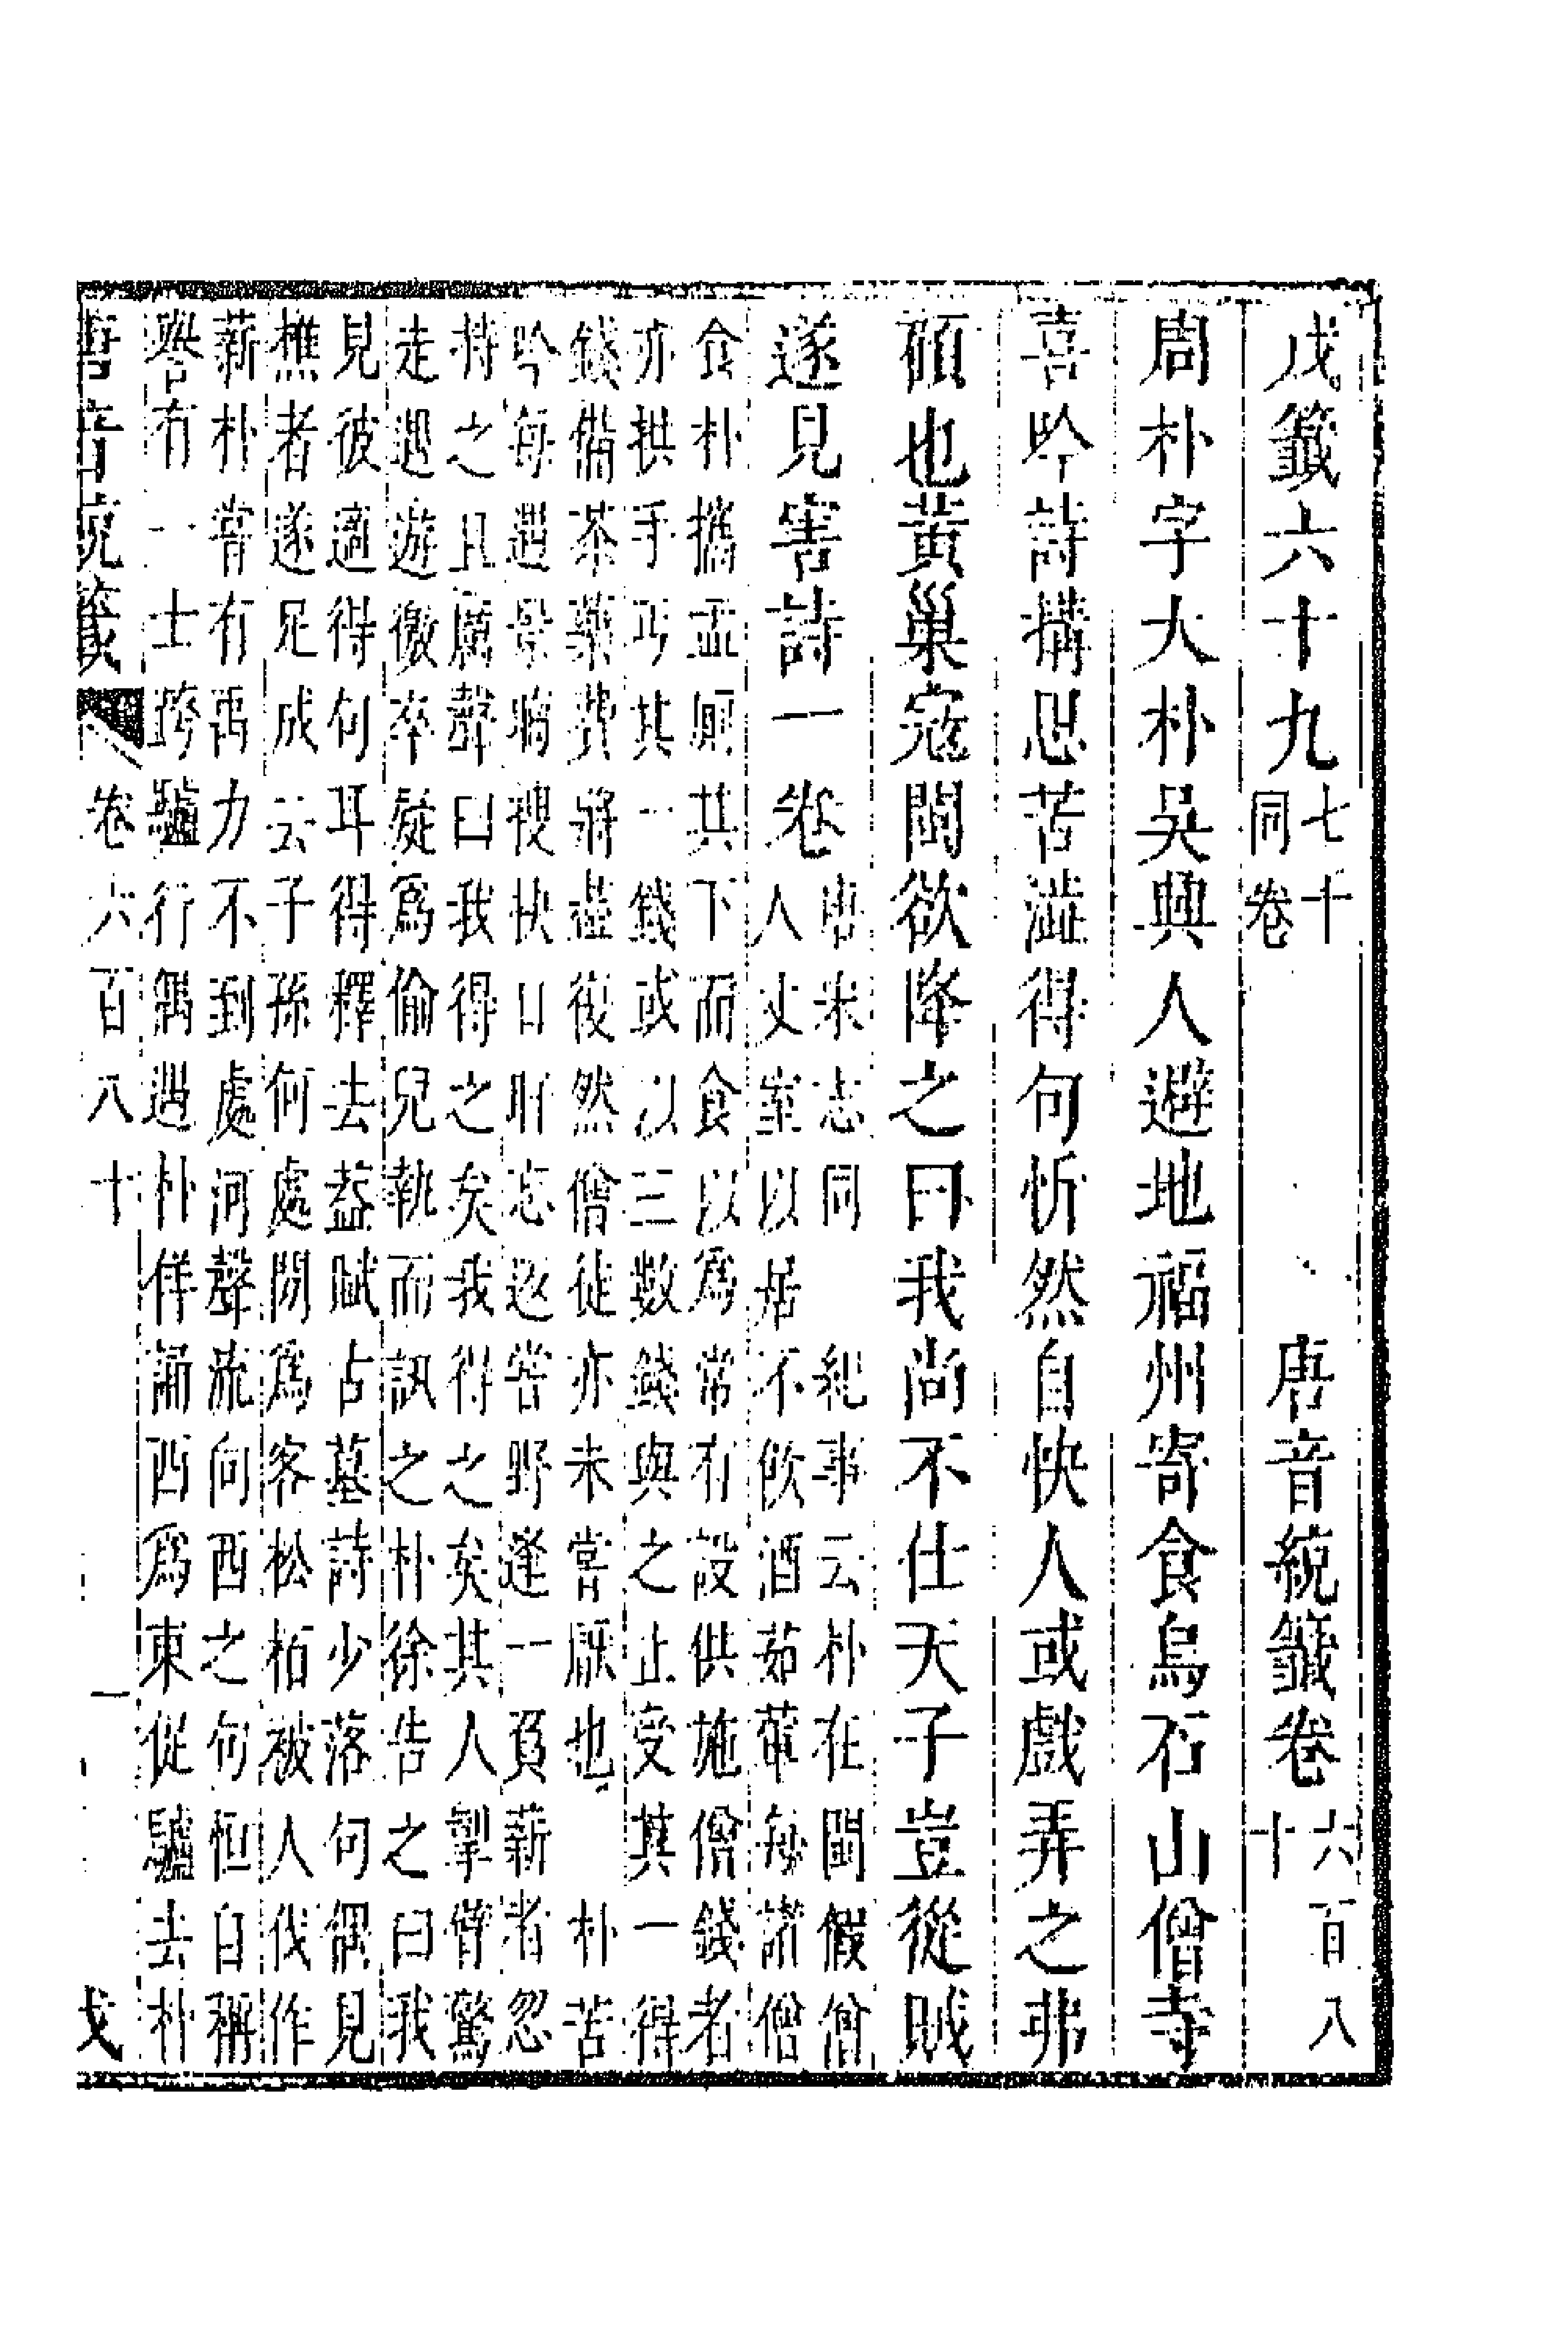 戊籤六十九 七十同卷 唐音統籤卷 六百八十
周朴字大朴吳興人避地福州寄食烏石山僧寺
喜吟詩搆思苦澁得句忻然自快人或戲弄之弗
顧也黃巢寇閩欲降之曰我尚不仕天子豈從賊
遂見害詩一卷 唐宋志同 紀事云朴在閩假僧
人丈室以居不飲酒茹葷每諸僧
食朴攜盂厠其下而食以爲常有設供施僧錢者
亦拱手丐其一錢或以三數錢與之止受其一得
錢備茶藥費將盡復然僧徒亦未嘗厭也 朴苦
吟每遇景搜抉日旰忘返嘗野逢一負薪者忽
持之且厲聲曰我得之矣我得之矣其人掣臂驚
走遇遊徼卒疑爲偷兒執而訊之朴徐告之曰我
見彼適得句耳得釋去葢賦古墓詩少落句偶見
樵者遂足成云子孫何處閒爲客松栢被人伐作
薪朴嘗有禹力不到處河聲流向西之句恒自稱
譽有一士跨驢行偶遇朴佯誦西爲東促驢去朴
唐音統籤 卷六百八十 一 戈